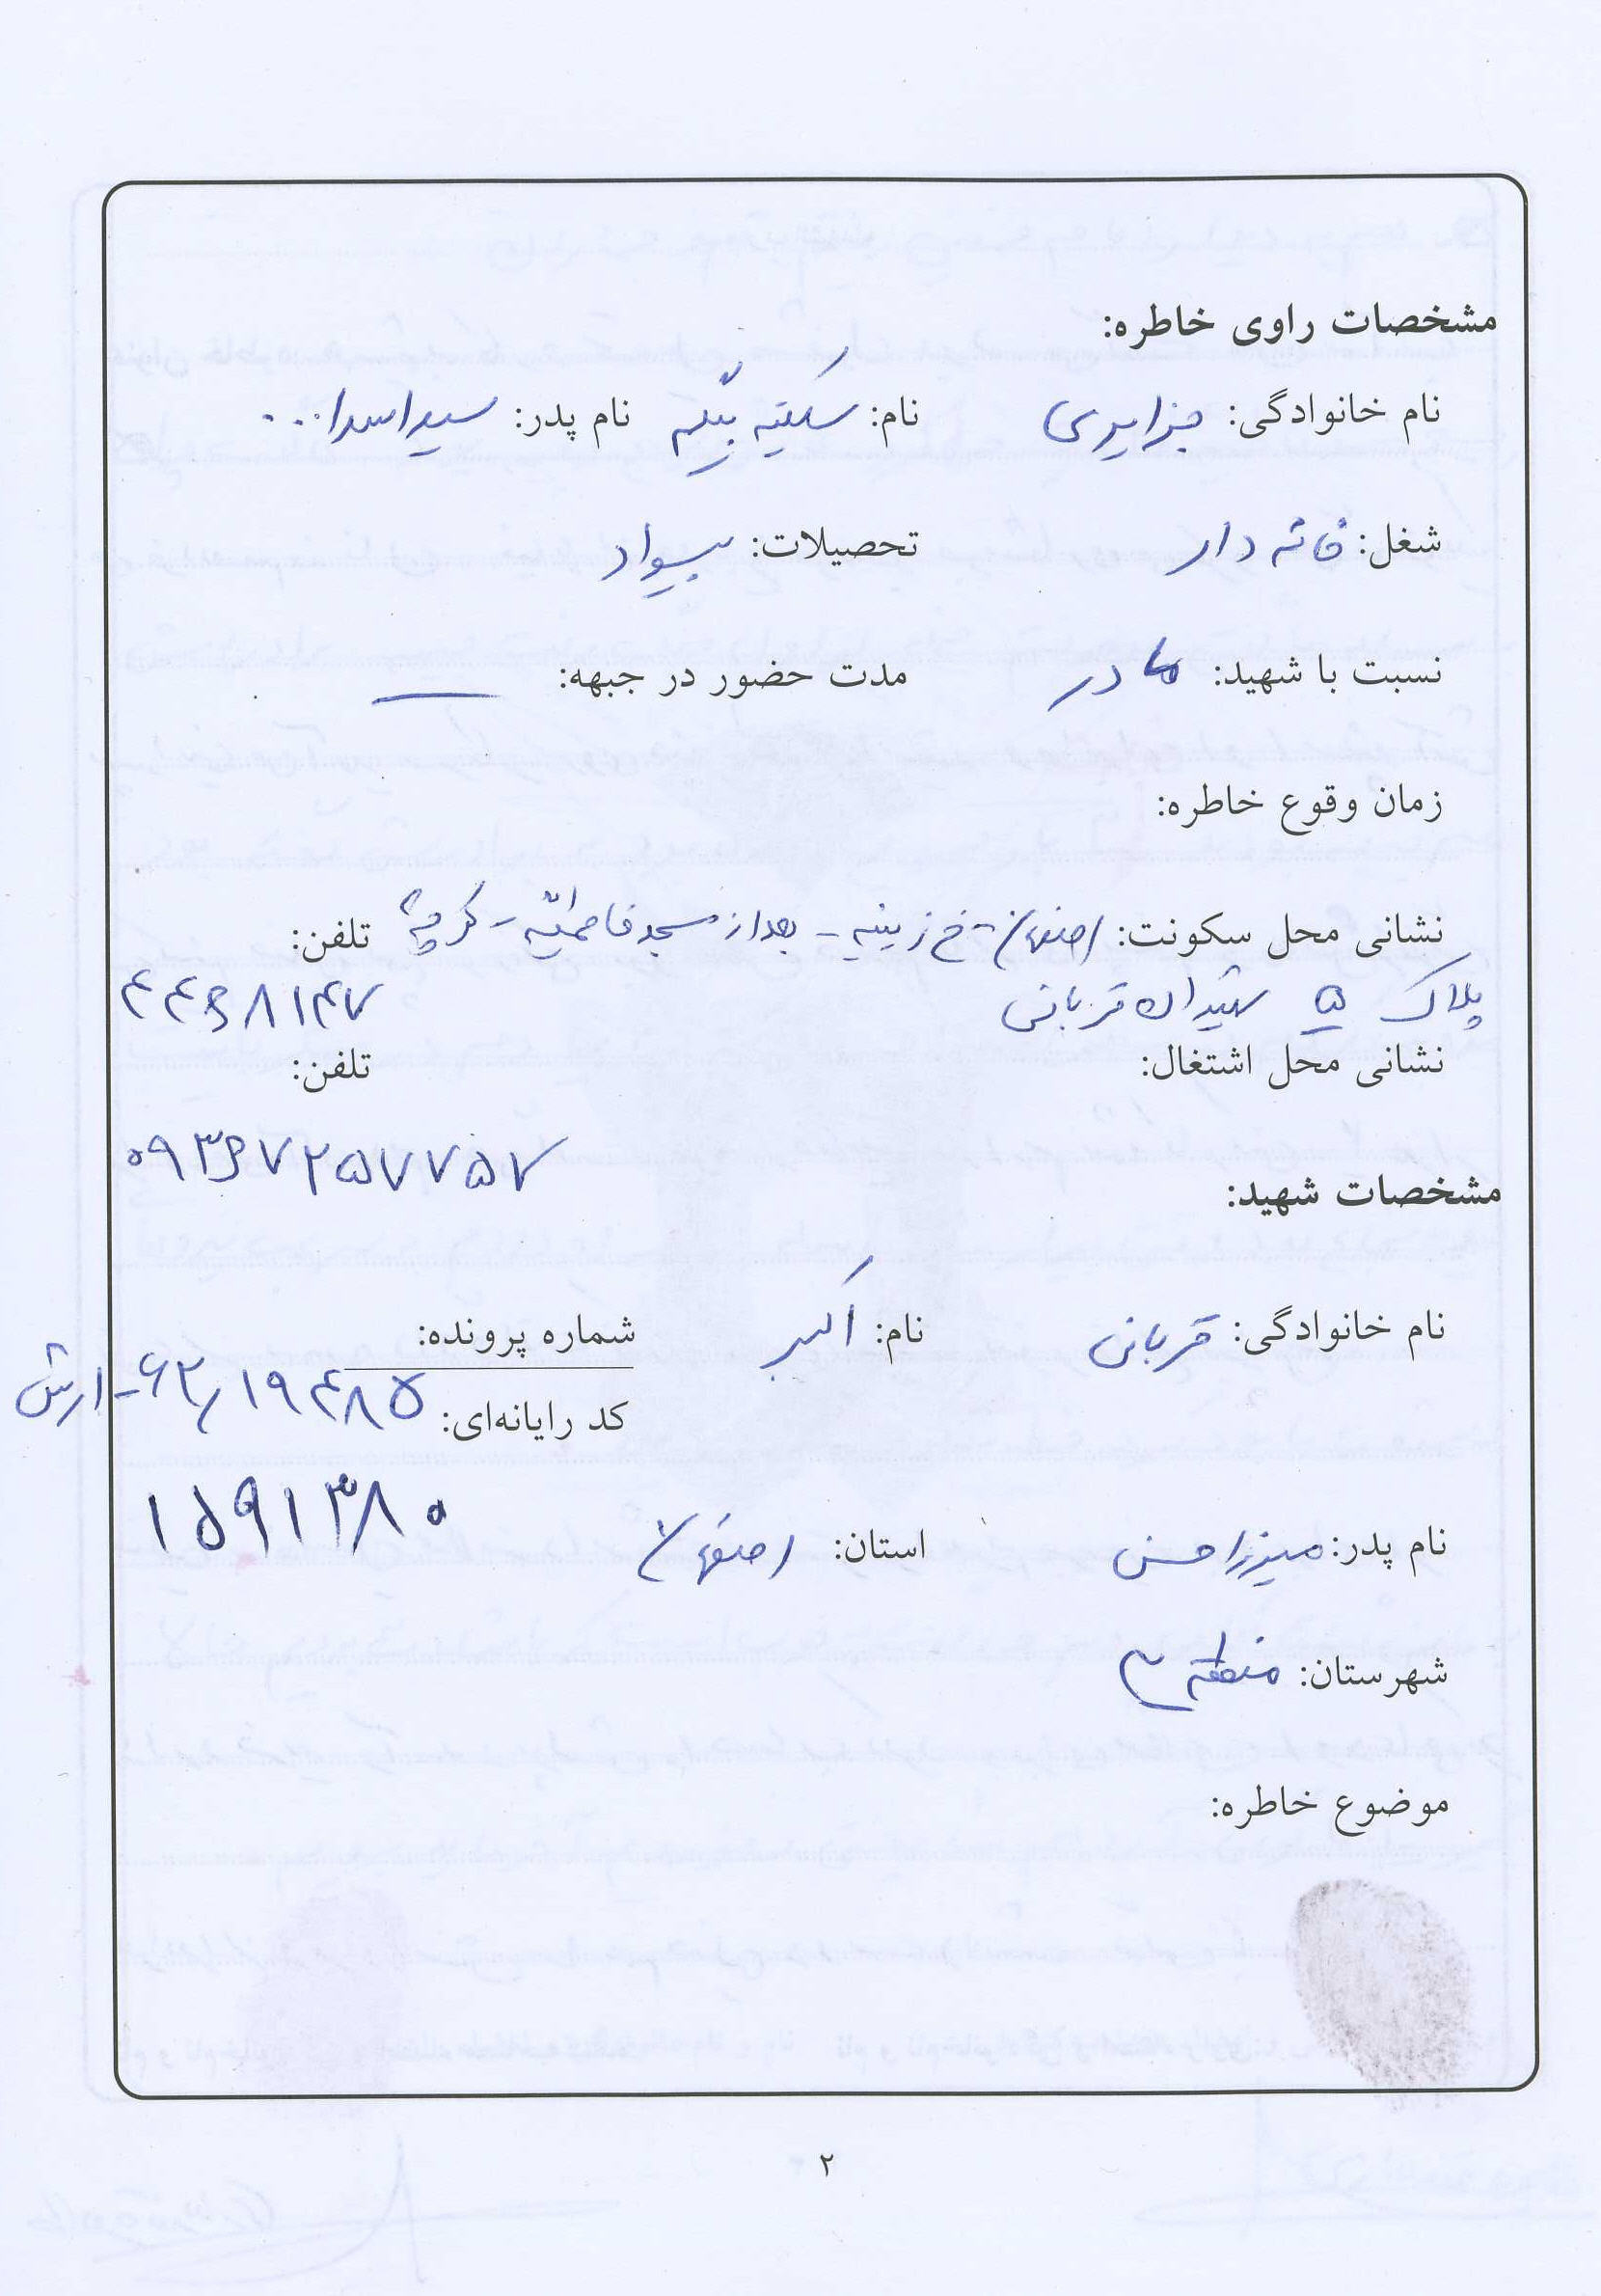 مشخصات راوی خاطره:
نام خانوادگی: جزایری نام: سکینه بیگم نام پدر: سیداسدا...
شغل: خانه دار تحصیلات: بیسواد
نسبت با شهید: مادر مدت حضور در جبهه: ــــ
زمان وقوع خاطره:
نشانی محل سکونت: اصفهان - خ زینبیه - بعد از مسجد فاطمیّه - کوچه تلفن:
پلاک ۵ شهیدان قربانی ۴۴۶۸۱۴۷
نشانی محل اشتغال: تلفن:
۰۹۳۶۷۲۵۷۷۵۷
مشخصات شهید:
نام خانوادگی: قربانی نام: اکبر شماره پرونده:
۶۲/۱۹۴۸۵ - ارتش
کد رایانه‌ای:
۱۵۹۱۳۸۰
نام پدر: میرزا حسن استان: اصفهان
شهرستان: منطقه ۳
موضوع خاطره:
۲